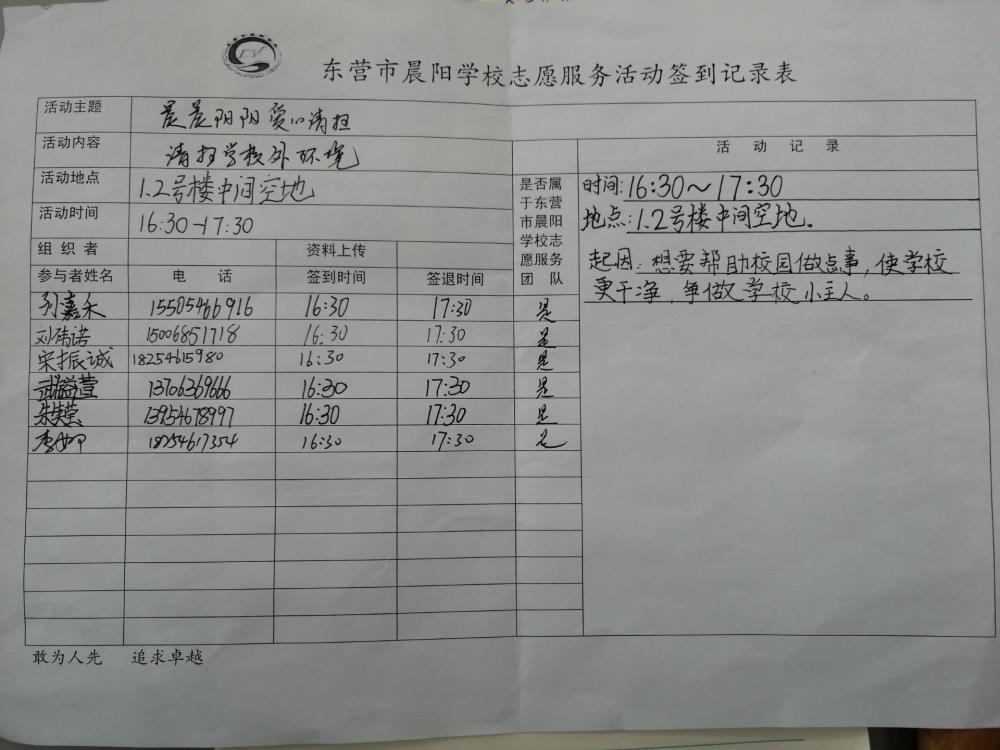 东营市晨阳学校志愿服务活动签到记录表
活动主题 晨晨阳阳爱心清扫
活动内容 清扫学校外环境
活动地点 1.2号楼中间空地
活动时间 16:30-17:30
组织者 资料上传
参与者姓名 电话 签到时间 签退时间
是否属于东营市晨阳学校志愿服务团队
刘嘉禾 15505466916 16:30 17:30 是
刘祎诺 15006851718 16:30 17:30 是
宋振诚 18254615980 16:30 17:30 是
13706369666 16:30 17:30 是
13954678997 16:30 17:30 是
18254617354 16:30 17:30 是
活动记录
时间:16:30～17:30
地点:1.2号楼中间空地.
起因:想要帮助校园做点事,使学校
更干净,争做学校小主人。
敢为人先 追求卓越